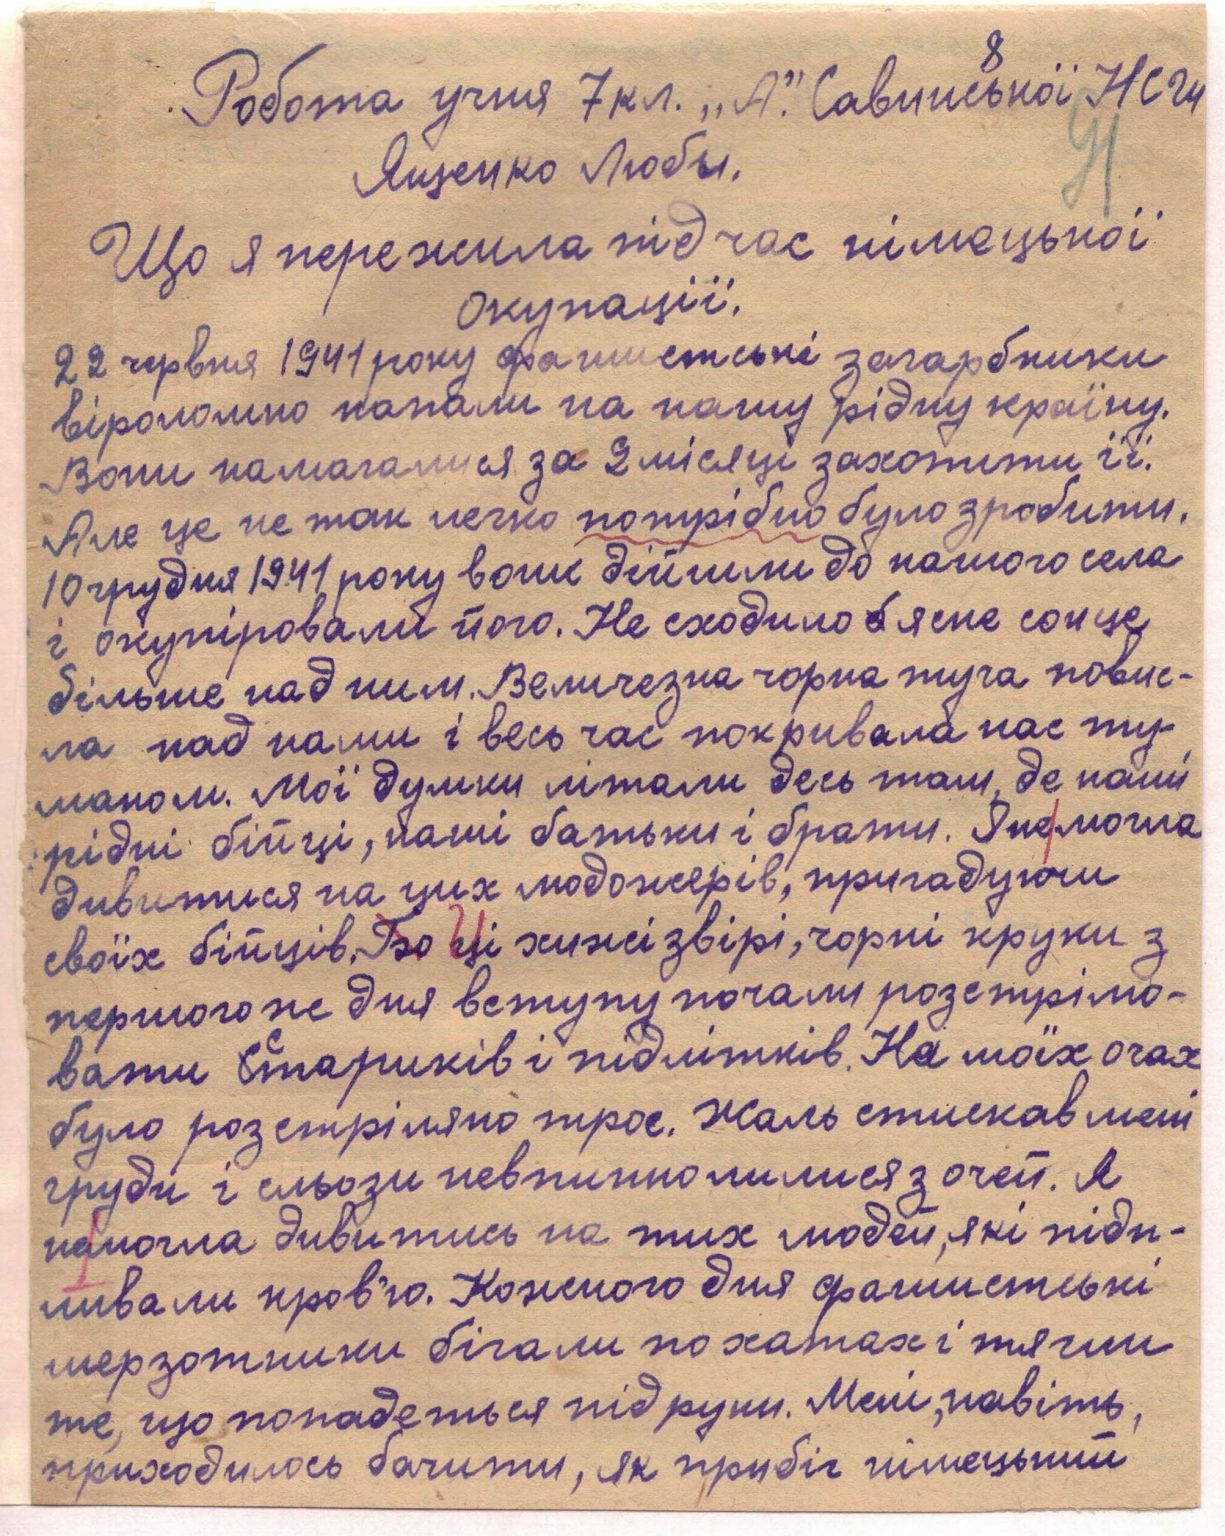 8
Робота учня 7 кл. „А". Савинської НСШ
91
Ященко Люби.
Що я пережила під час німецької
окупації.
22 червня 1941 року фашистські загарбники
віроломно напали на нашу рідну країну.
Вони намагалися за 2 місяці захопити її.
Але це не так легко потрібно було зробити.
10 грудня 1941 року вони дійшли до нашого села
і окупіровали його. Не сходило ясне сонце
більше над ним. Величезна чорна туча повис-
ла над нами і весь час покривала нас ту-
маном. Мої думки літали десь там, де наші
рідні бійці, наші батьки і брати. Я не могла
дивитися на цих людожерів, пригадуючи
своїх бійців. Бо Ці хижі звірі, чорні круки з
першого же дня вступу почали розстрілю-
вати стариків і підлітків. На моїх очах
було розстріляно троє. Жаль стискав мені
груди і сльози невпинно лилися з очей. Я
не могла дивитись на тих людей, які підп-
ливали кров'ю. Кожного дня фашистські
мерзотники бігали по хатах і тягли
те, що попадеться під руки. Мені, навіть,
приходилось бачити, як прибіг німецький